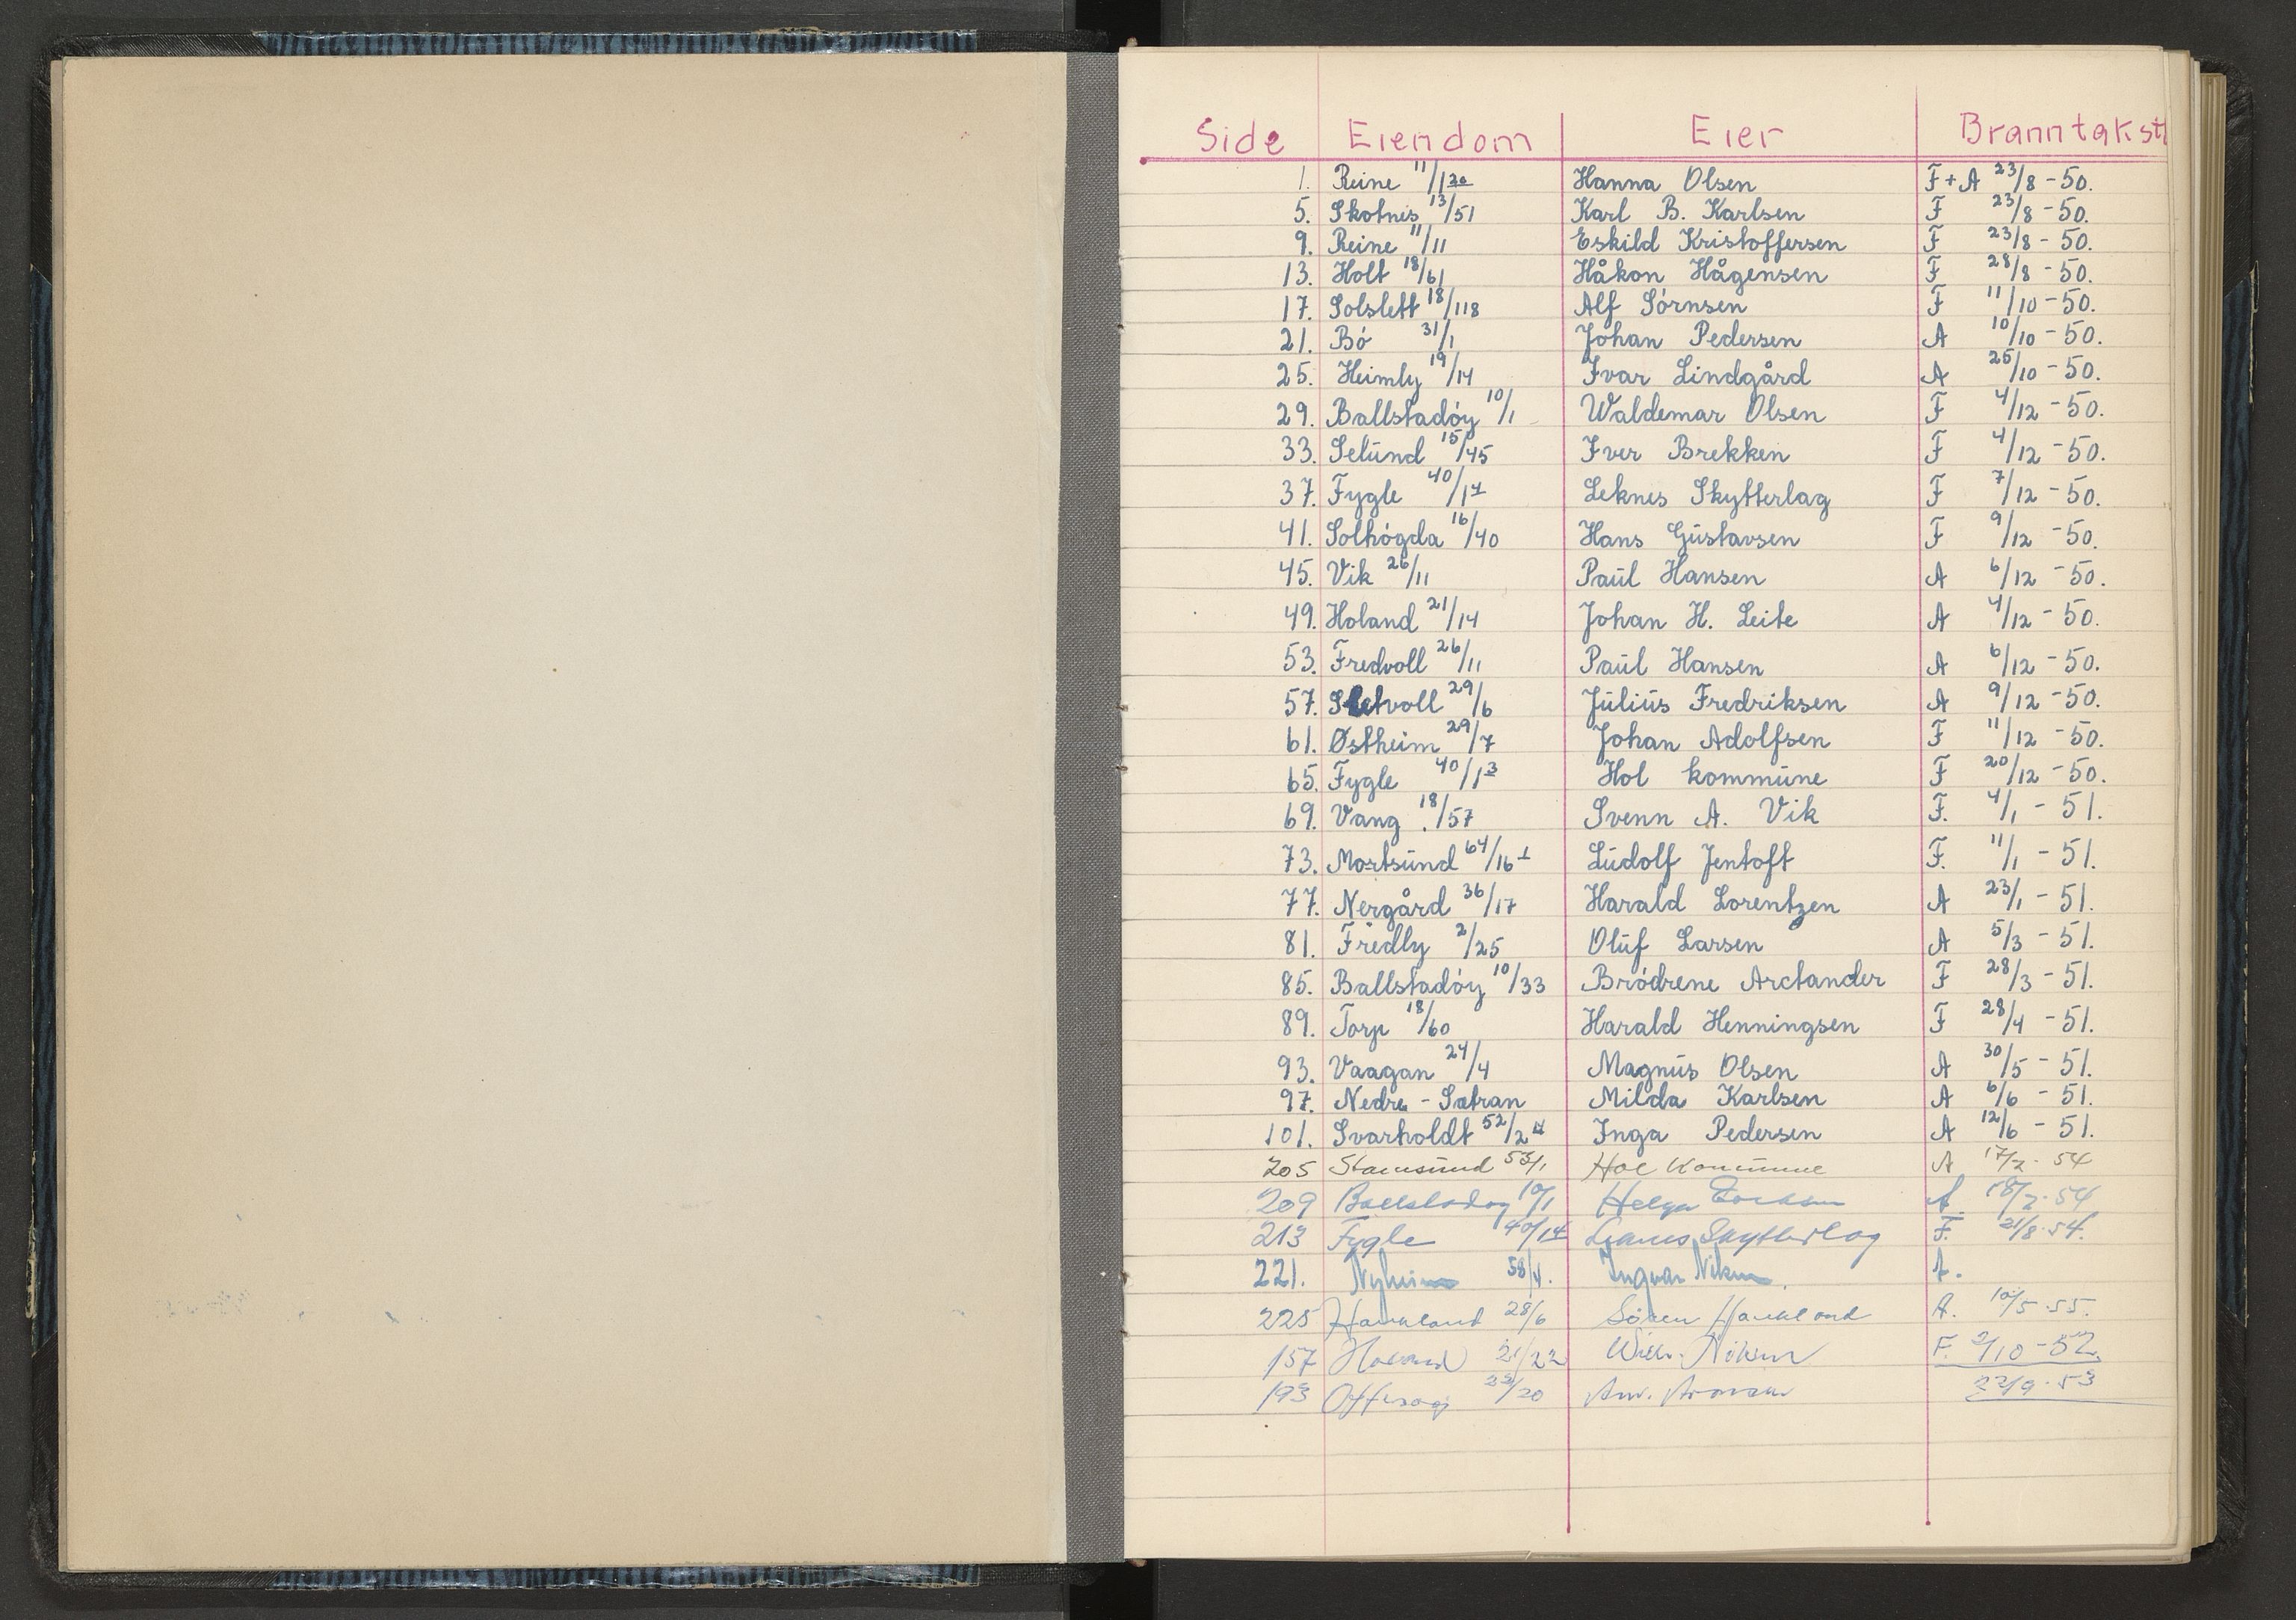 Side Eiendom Eier Branntakst
1. Reine 11/1 20 Hanna Olsen F+A 23/8 - 50.
5. Skotnes 13/51 Karl B. Karlsen F 23/8 - 50.
9. Reine 11/11 Eskild Kristoffersen F 23/8 - 50.
13. Holt 18/61 Håkon Hågensen F 28/8 - 50.
17. Solslett 18/118 Alf Sørnsen F 11/10 - 50.
21. Bó 31/1 Johan Pedersen A 10/10 - 50.
25. Heimly 19/14 Ivar Lindgård A 26/10 - 50.
29. Ballstadóy 10/1 Waldemar Olsen F 4/12 - 50.
33. Selund 15/45 Iver Brekken F 4/12 - 50.
37. Fygle 40/14 Leknes Skytterlag F 7/12 - 50.
41. Solhógda 16/40 Hans Gustavsen F 9/12 - 50.
45. Vik 26/11 Paul Hansen A 6/12 - 50.
49. Holand 21/14 Johan H. Leite A 4/12 - 50.
53. Fredvoll 26/11 Paul Hansen A 6/12 - 50.
57. Sletvoll 29/6 Julius Fredriksen A 9/12 - 50.
61. Østheim 29/7 Johan Adolfsen F 11/12 - 50.
65. Fygle 40/13 Hol kommune F 20/12 - 50.
69. Vang 18/57 Svenn A. Vik F. 4/1 - 51.
73. Mortsund 64/16 1 Ludolf Jentoft F. 11/1 - 51.
77. Nergård 36/17 Harald Lorentzen A 23/1 - 51.
81. Fredly 2/25 Oluf Larsen A 5/3 - 51.
85. Ballstadóy 10/33 Bródrene Arctander F 28/3 - 51.
89. Torp 18/60 Harald Henningsen F 28/4 - 51.
93. Vaagan 24/4 Magnus Olsen A 30/5 - 51.
97. Nedre - Satran Milda Karlsen A 6/6 - 51.
101. Svarholdt 52/2 4 Inga Pedersen A 12/6 - 51.
205 Stamsund 53/1 Hol Kommune A 17/2 54
209 Ballstadøy 10/1 Helga A 18/2 - 54
213 Fygle 40/14 Skytterlag F. 21/8 - 54.
221. Nyheim 58/4. Ingvar A.
225 Haukland 28/6 Søren Haukland A. 10/5 - 55.
157 Holand 21/22 F. 2/10 - 52
193 Offersøy 22/20 22/9 - 53